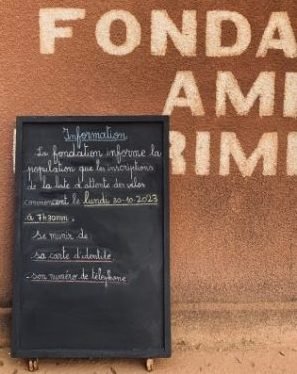 FONDA
AMI
RIM
Information
La fondation informe la
population que les inscriptions
de la liste d'attente des vélos
commencent le lundi 30-10-2023
à 7h30mn.
Se munir de:
- sa carte d'identité
- son numéro de téléphone